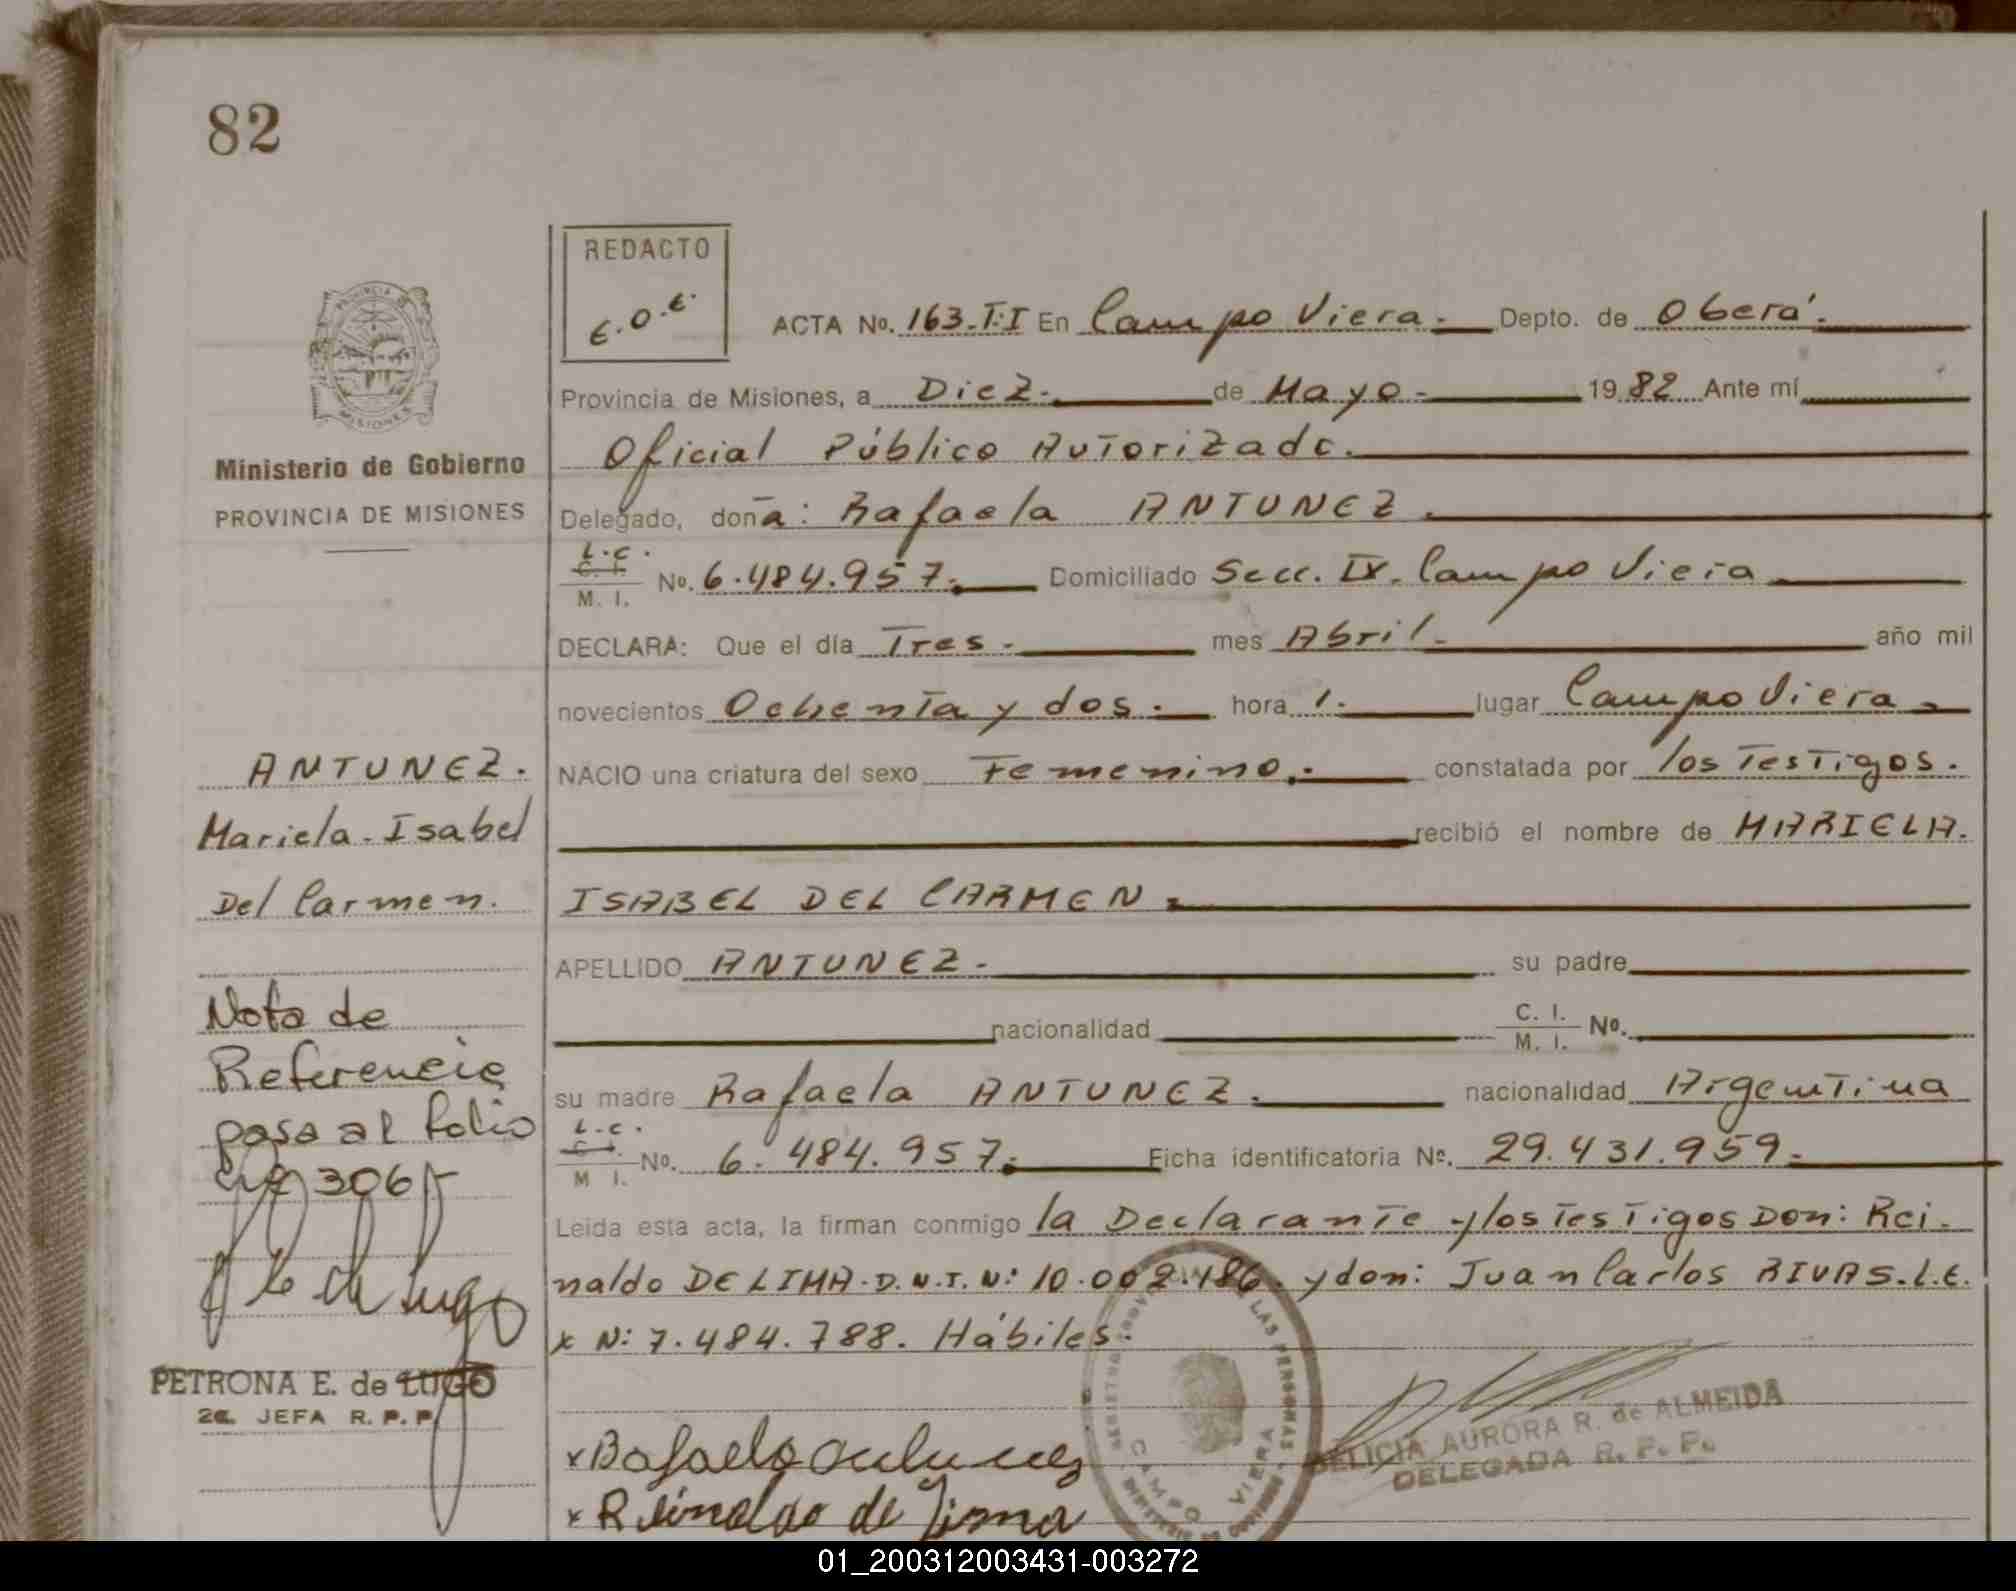 82
REDACTO
E.O.E.
ACTA No. 163.T:I En Campo Viera.- Depto. de Oberá.-
Provincia de Misiones, a Diez.- de Mayo.- 1982 Ante mí
Oficial Público Autorizado.
Delegado, doña: Rafaela ANTUNEZ.
L.C.
C. I.
M. I.
No. 6.484.957.- Domiciliado Secc. IX. Campo Viera
DECLARA: Que el día Tres.- mes Abril.- año mil
novecientos Ochenta y dos.- hora 1.- lugar Campo Viera.-
NACIO una criatura del sexo Femenino.- constatada por los Testigos.
recibió el nombre de MARIELA.
ISABEL DEL CARMEN.-
APELLIDO ANTUNEZ.- su padre
nacionalidad C. I. M. I. No.
su madre Rafaela ANTUNEZ.- nacionalidad Argentina
L.C.
C. I.
M I.
No. 6.484.957.- Ficha identificatoria No. 29.431.959.-
Leida esta acta, la firman conmigo la Declarante y los Testigos Don: Rei-
naldo DE LIMA. D.N.I. N: 10.002.186. y don: Juan Carlos RIVAS. L.E.
x N: 7.484.788. Hábiles.
x Rafaela Antunez
x Reinaldo de Lima
Ministerio de Gobierno
PROVINCIA DE MISIONES
PROVINCIA DE
MISIONES
ANTUNEZ.
Mariela-Isabel
Del Carmen.
Nota de
Referencia
pasa al folio
306
PETRONA E. de LUGO
2a. JEFA R. P. P.
DE LAS PERSONAS
CAMPO VIERA
DELICIA AURORA R. de ALMEIDA
DELEGADA R. P. P.
01_200312003431-003272